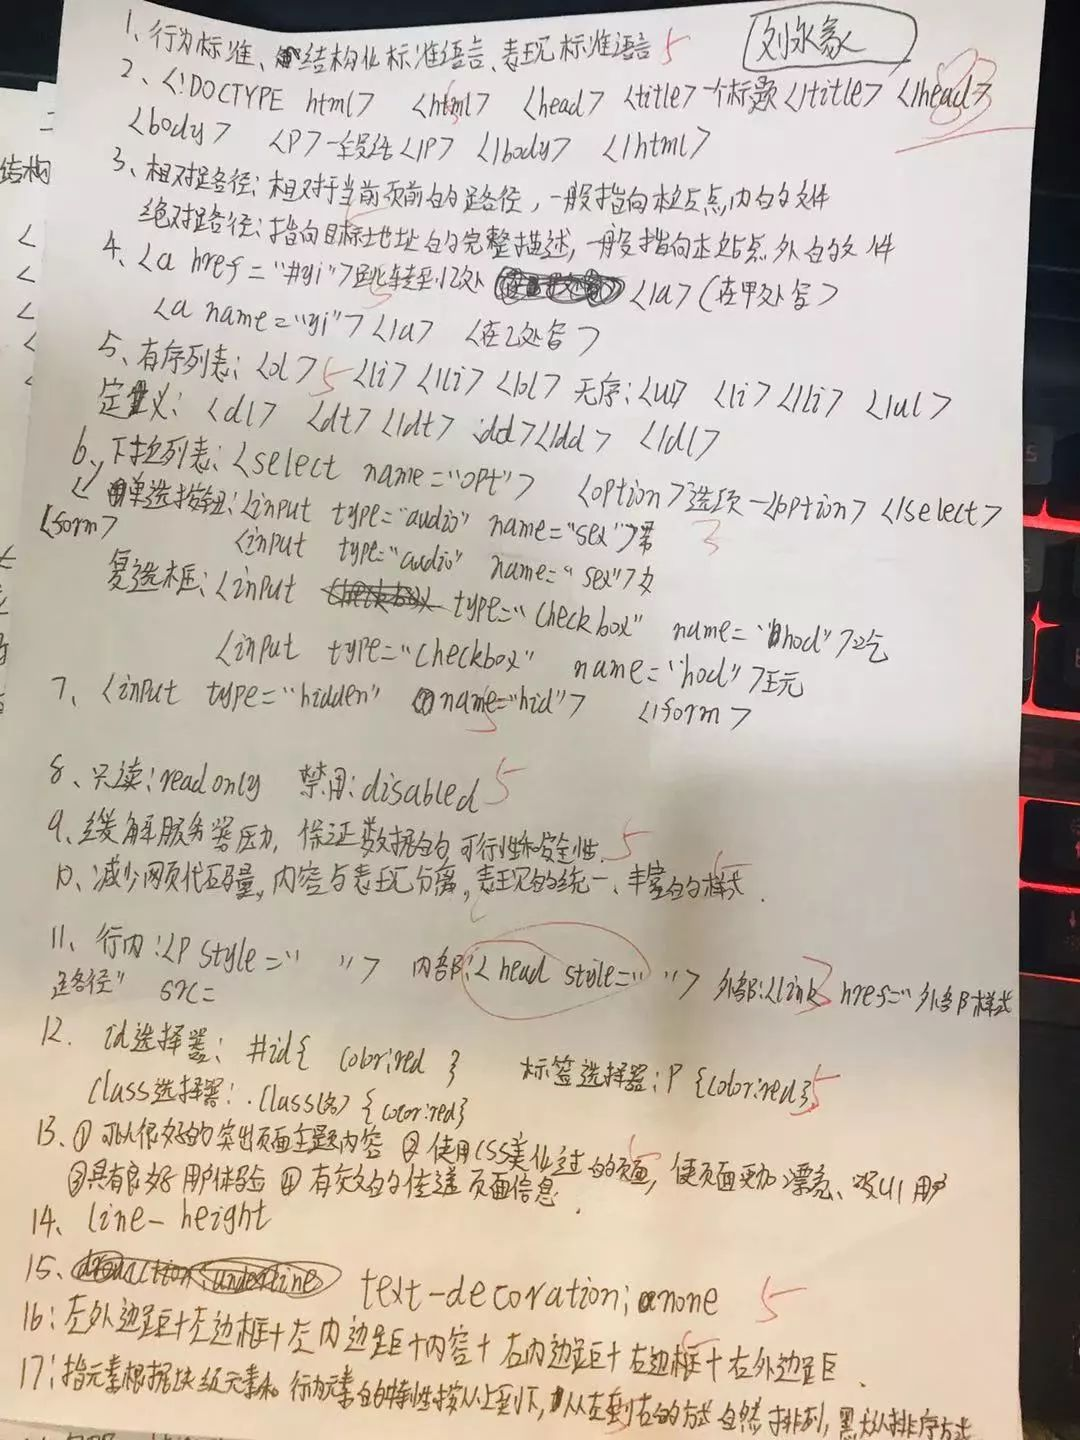 刘永豪
1、行为标准、结构化标准语言、表现标准语言 5
2、<!DOCTYPE html> <html> <head> <title>一个标题</title> </head>
<body> <P>一段话</P> </body> </html>
3、相对路径:相对于当前页前的路径,一般指向本站点内的文件
绝对路径:指向目标地址的完整描述,一般指向本站点外的文件
4、<a href="#yi">跳转到乙处 </a> (在甲处写>
<a name="yi"></a> <在乙处写>
5、有序列表:<ol> 5 <li></li></ol> 无序:<ul> <li></li> </ul>
定义: <dl> <dt></dt> <dd></dd> </dl>
6、下拉列表:<select name="opt"> <option>选项一</option> </select>
单选按钮:<input type="audio" name="sex">男 3
<form> <input type="audio" name="sex">女
复选框:<input type="checkbox" name="hod">
<input type="checkbox" name="hod">
7、<input type="hidden" name="hid"> </form>
8、只读:readonly 禁用:disabled 5
9、缓解服务器压力,保证数据的可行性和安全性. 5
10、减少网页代码量,内容与表现分离,表现的统一、丰富的样式.
11、行内:<P style=" "> 内部:<head style=" "> 外部:<link href="外部样式
路径" src=
12. id选择器: #id{ color:red } 标签选择器:P {color:red} 5
class选择器: .class(名) {color:red}
13、① 可以很好的突出页面主题内容 ② 使用CSS美化过的页面,使页面更加漂亮、吸引用户
③具有良好用户体验 ④ 有效的传递页面信息.
14、line-height
15、text-decoration:none 5
16:左外边距+左边框+左内边距+内容+右内边距+右边框+右外边距.
17:指元素根据块级元素和行内元素的特性按从上到下,从左到右的方式自然排列,默认排序方式